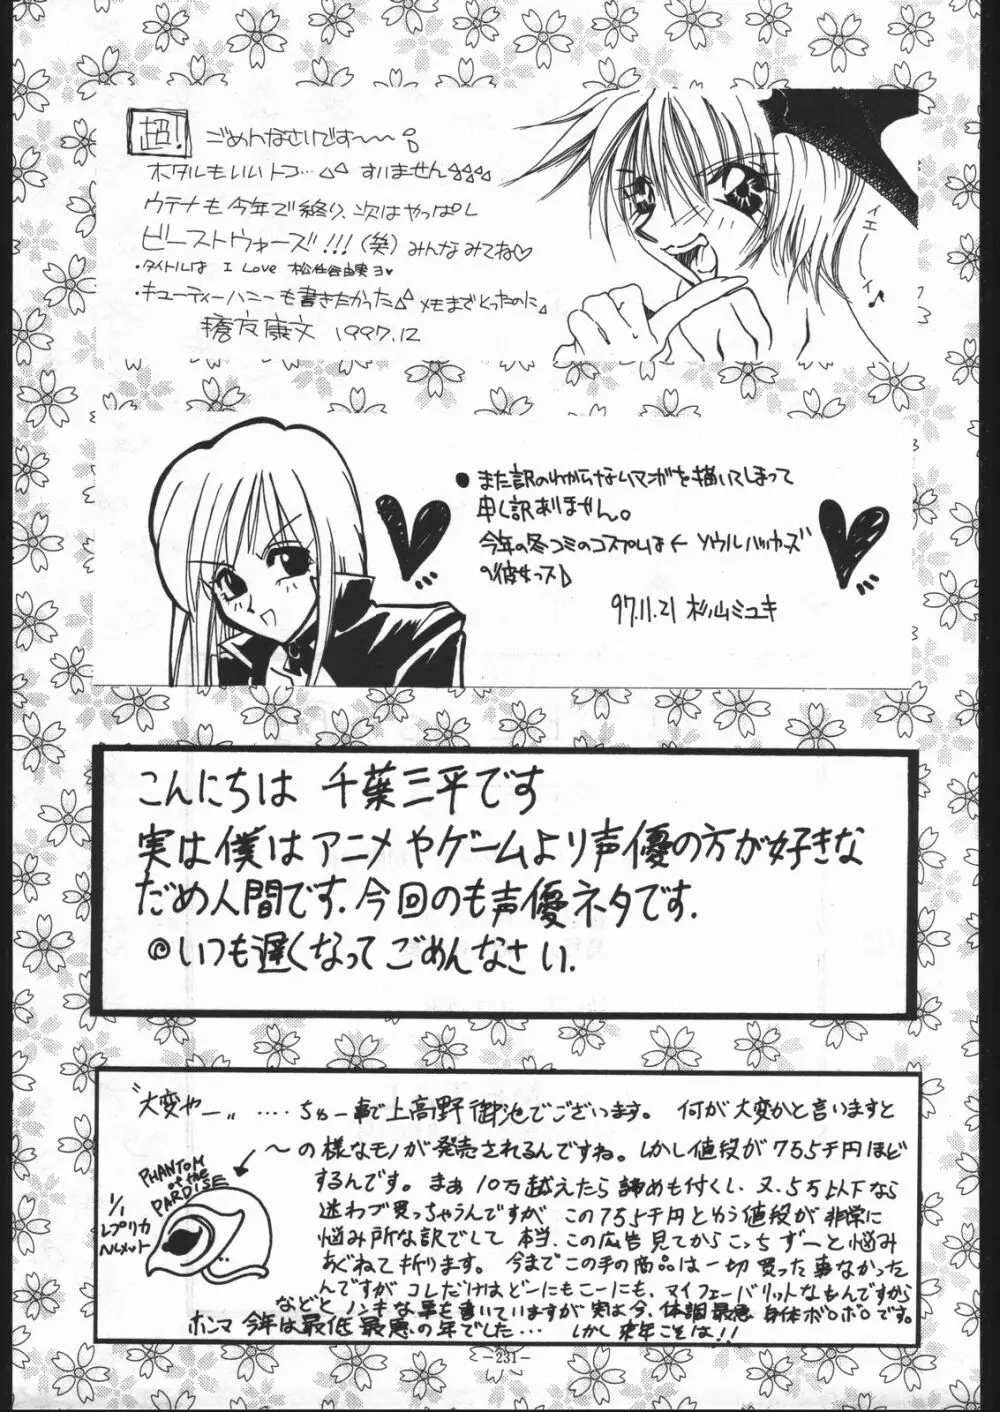 超! ごめんなさいです〜〜
ホタルもいいトコ… すいません
ウテナも今年で終り、次はやっぱし
ビーストウォーズ!!!(笑)みんなみてね♡
・タイトルは I Love 松任谷由実ヨ♥
・キューティーハニーも書きたかった メモまでとったのに
友康文 1997.12
イエーイ♪
●また訳のわからないマンガを描いてしまって
申し訳ありません。
今年の冬コミのコスプレは← ソウルハッカーズ
の彼女っス
97.11.21 杉山ミユキ
こんにちは 千葉三平です
実は僕はアニメやゲームより声優の方が好きな
だめ人間です.今回のも声優ネタです.
◎いつも遅くなってごめんなさい.
〝大変やー〟....ちゅー事で上高野御池でございます。何が大変かと言いますと
〜の様なモノが発売されるんですね。しかし値段が7万5千円ほど
するんです。まぁ10万越えたら諦めも付くし、又、5万以下なら
迷わず買っちゃうんですが この7万5千円とゆう値段が非常に
悩み所な訳でして 本当、この広告見てからこっちずーと悩み
あぐねて折ります。今までこの手の商品は一切買った事なかった
んですが コレだけはどーにもこーにも、マイフェーバリットなもんですから
などとノンキな事を書いていますが実は今、体調最悪 身体ボロボロです。
ホンマ今年は最低最悪の年でした… しかし来年こそは!!
PHANTOM
of the
PARDISE
1/1
レプリカ
ヘルメット
-231-